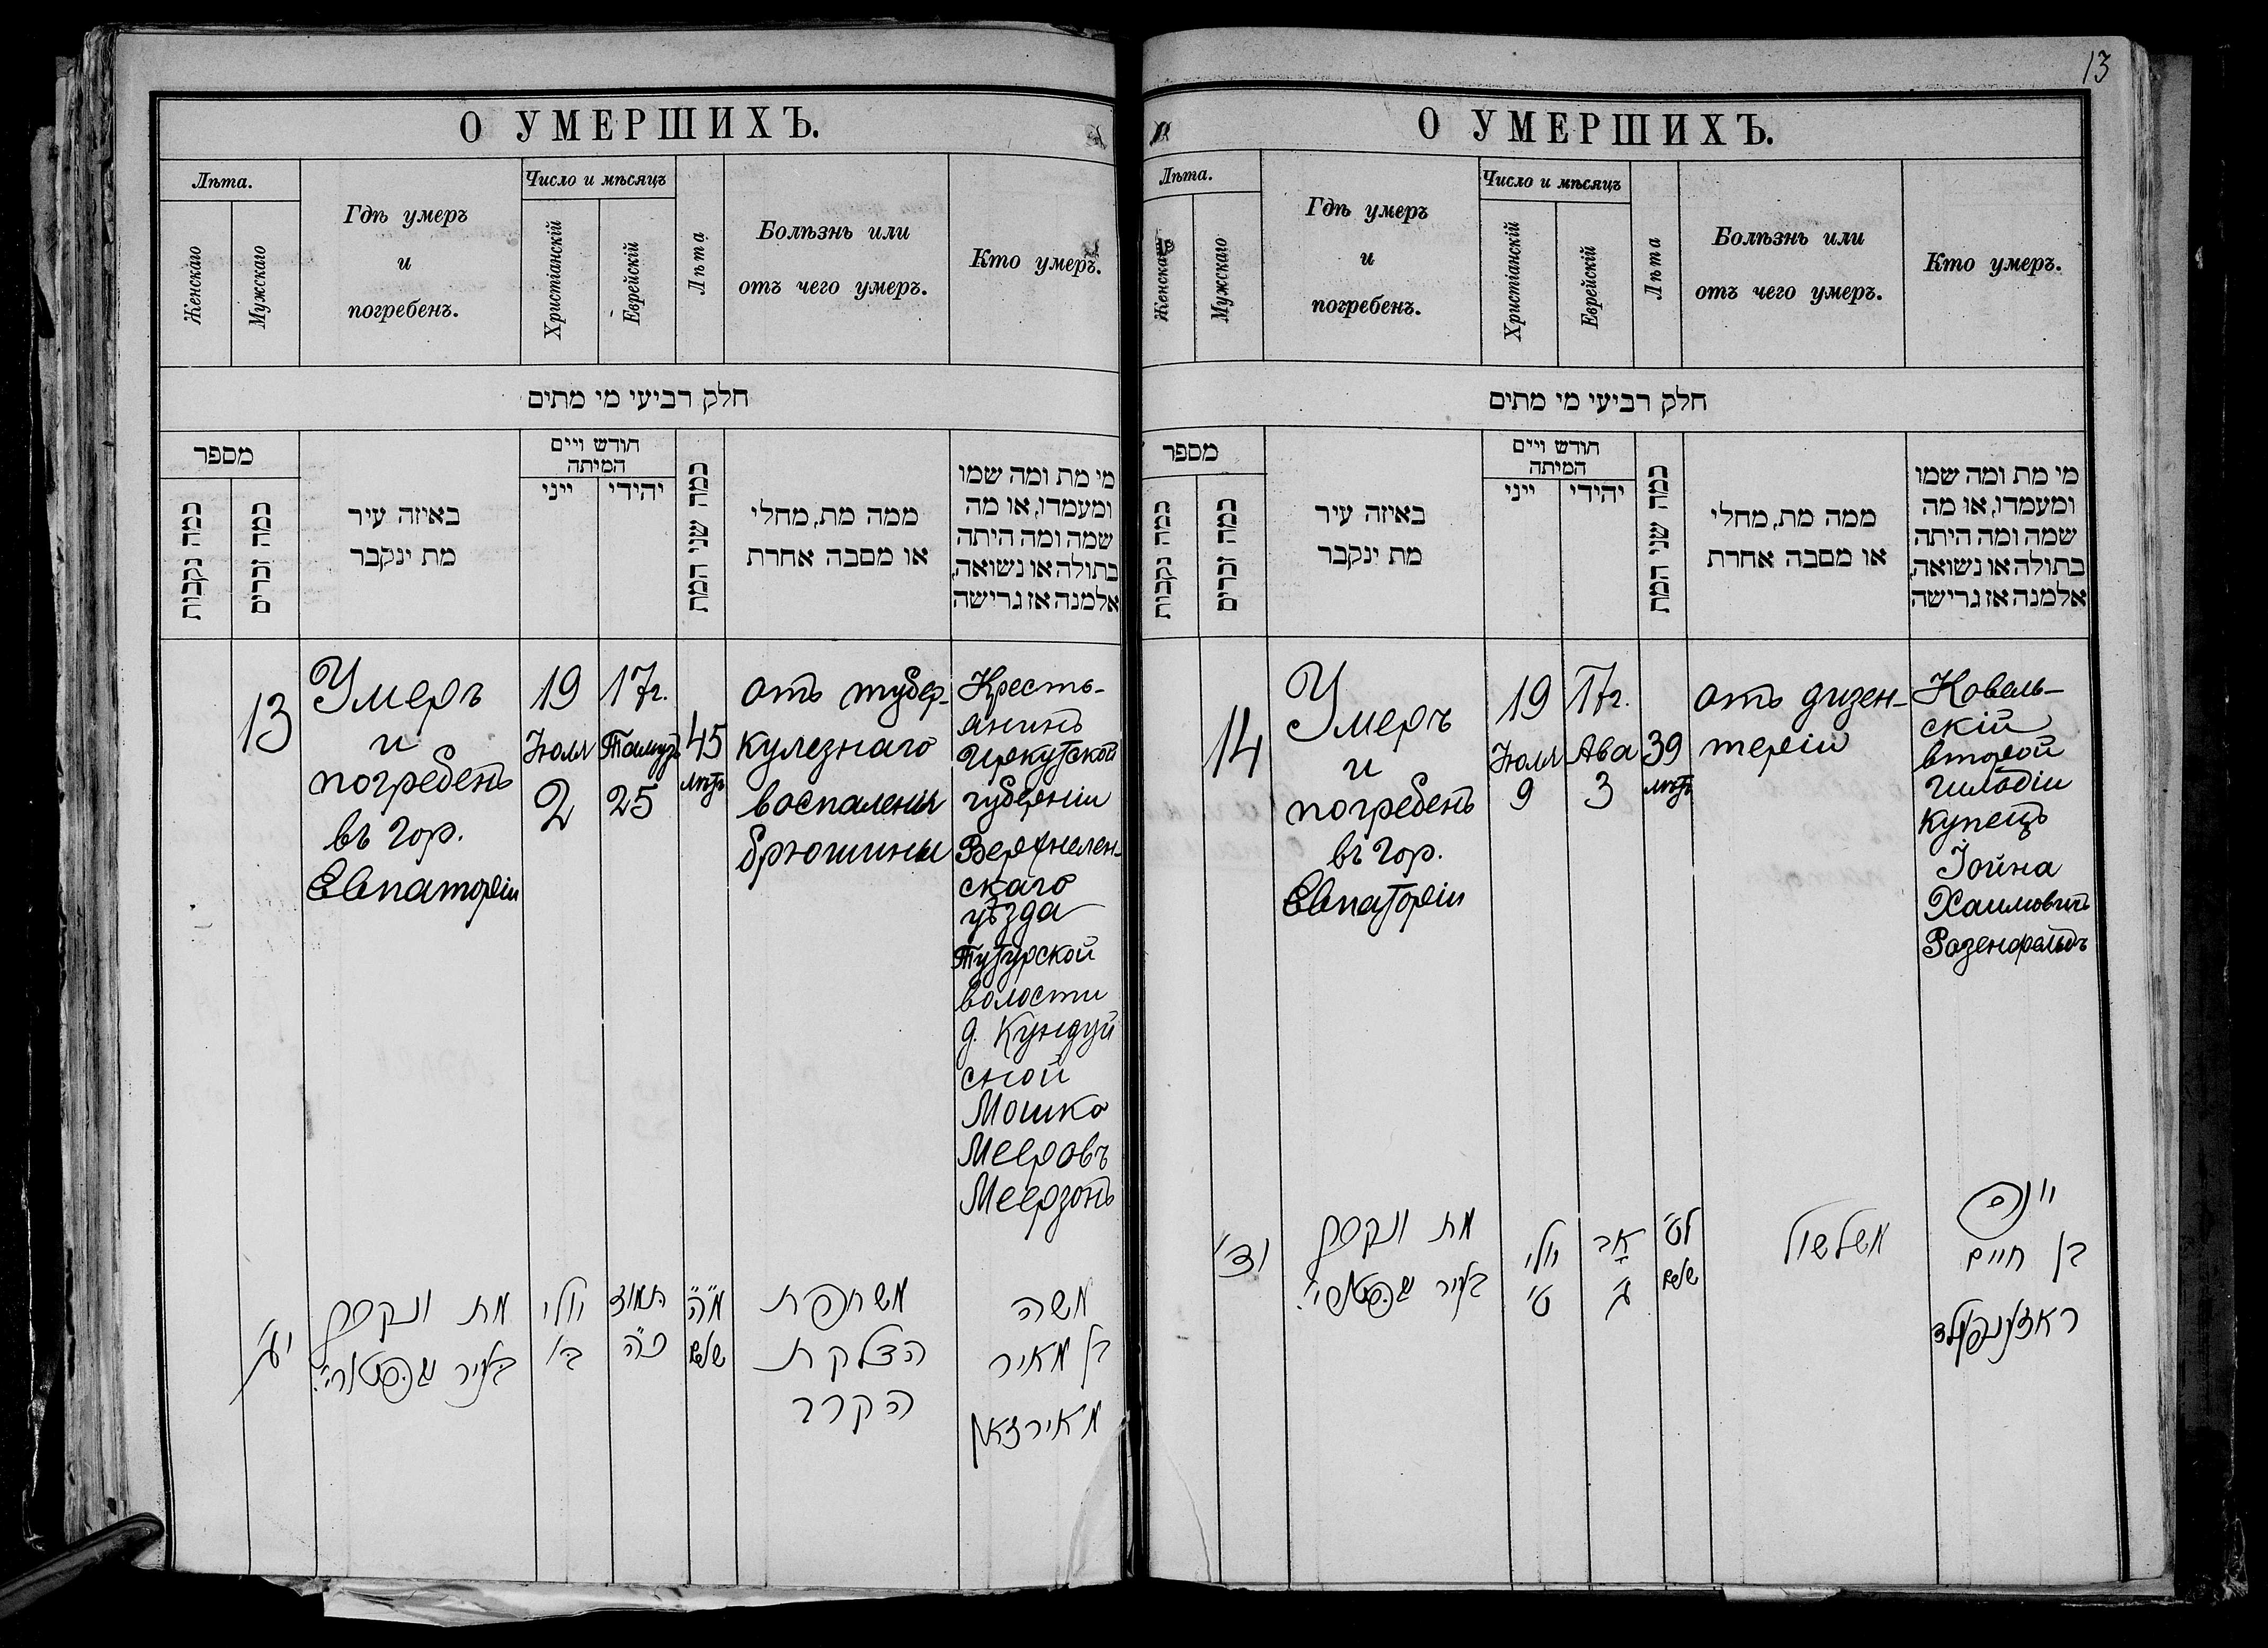 13
О УМЕРШИХЪ.
Лѣта.
Женскаго
Мужскаго
Гдѣ умеръ
и
погребенъ.
Число и мѣсяцъ
Христіанскій
Еврейскій
Лѣта
Болѣзнь или
отъ чего умеръ.
Кто умеръ.
חלק רביעי מי מתים
מספר
כמה נקבות
כמה זכרים
באיזה עיר
מת ינקבר
חודש ויים
המיתה
ייני
יהידי
כמה שני המת
ממה מת, מחלי
או מסבה אחרת
מי מת ומה שמו
ומעמדו, או מה
שמה ומה היתה
בתולה או נשואה,
אלמנה אז גרישה
13
Умеръ
и
погребенъ
въ гор.
Евпаторіи
19
Іюля
2
17г.
Тамузъ
25
45
лѣтъ
отъ тубер-
кулезнаго
воспаленія
брюшины
Кресть-
янинъ
Иркутской
губерніи
Верхнелен-
скаго
уѣзда
Тутурской
волости
д. Кундуй
ской
Мошко
Мееровъ
Меерзонъ
יג׳
מת ונקבר
בעיר
יולי
ב׳
תמוז
כ״ה
מ״ה
שנים
משחפת
הצלקת
הקרב
משה
בן מאיר
מאירזאן
О УМЕРШИХЪ.
Лѣта.
Женскаго
Мужскаго
Гдѣ умеръ
и
погребенъ.
Число и мѣсяцъ
Христіанскій
Еврейскій
Лѣта
Болѣзнь или
отъ чего умеръ.
Кто умеръ.
חלק רביעי מי מתים
מספר
כמה נקבות
כמה זכרים
באיזה עיר
מת ינקבר
חודש ויים
המיתה
ייני
יהידי
כמה שני המת
ממה מת, מחלי
או מסבה אחרת
מי מת ומה שמו
ומעמדו, או מה
שמה ומה היתה
בתולה או נשואה,
אלמנה אז גרישה
14
Умеръ
и
погребенъ
въ гор.
Евпаторіи
19
Іюля
9
17г.
Ава
3
39
лѣтъ
отъ дизен-
теріи
Ковель-
скій
второй
гильдіи
купецъ
Іойна
Хаимовичъ
Розенфельдъ
יד׳
מת ונקבר
בעיר
יולי
ט׳
אב
ג׳
ל״ט
שנים
משלשול
יונה
בן חיים
ראזענפעלד